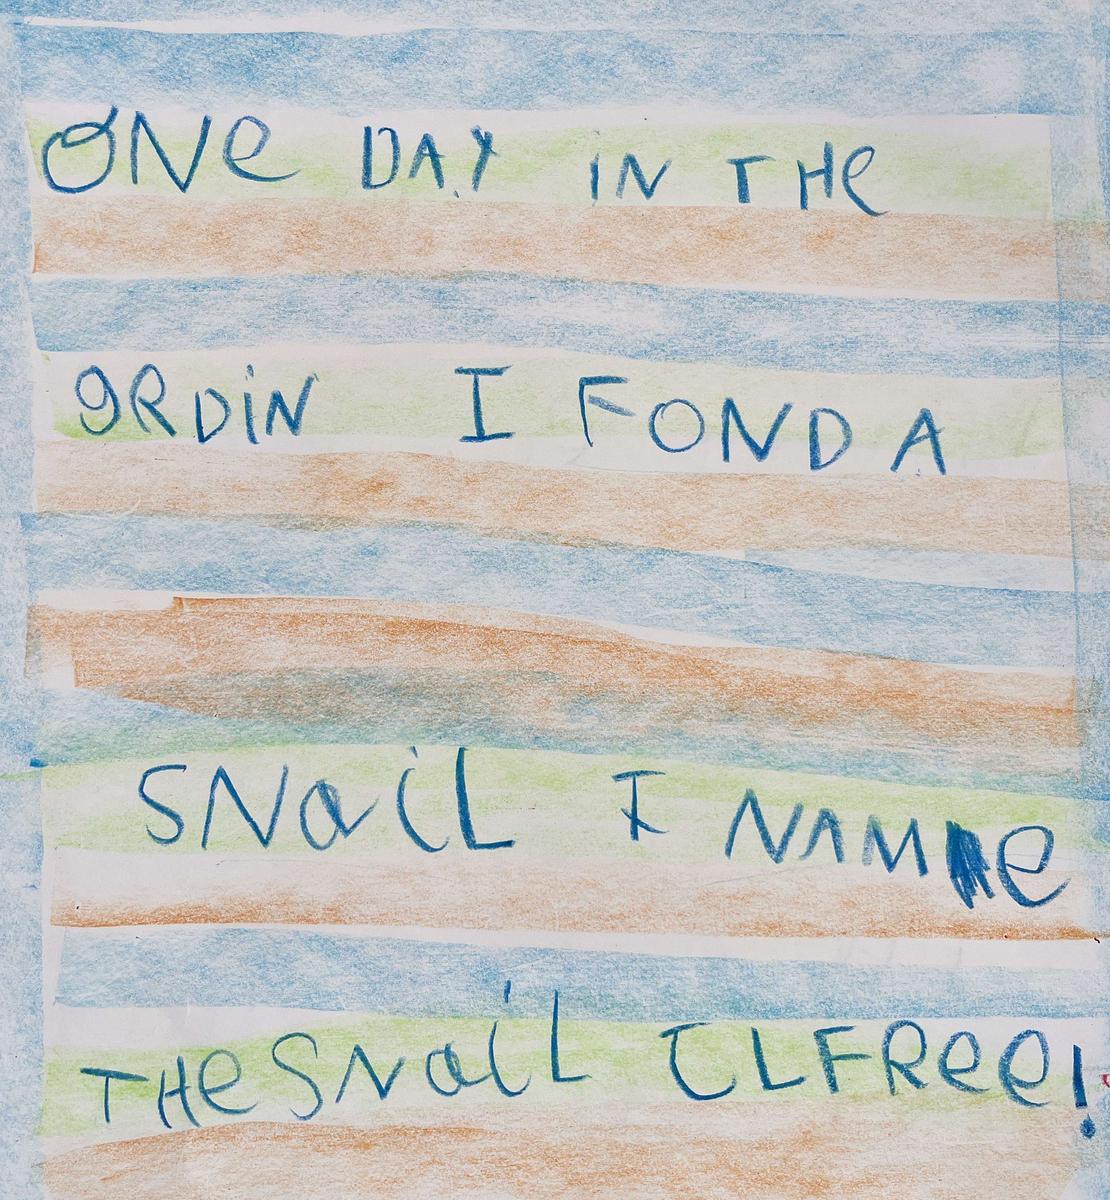 ONe DAY IN THe
gRDiN I FOND A
SNaiL I NAMe
THe SNaiL ILFRee!